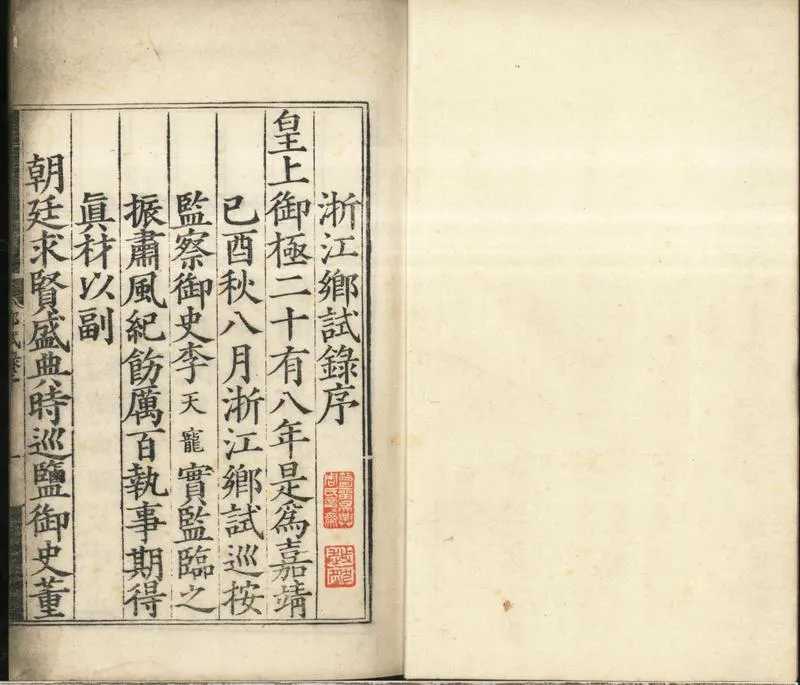 浙江鄉試錄序
皇上御極二十有八年是爲嘉靖
己酉秋八月浙江鄉試巡按
監察御史李天寵實監臨之
振肅風紀飭厲百執事期得
眞材以副
朝廷求賢盛典時巡鹽御史董